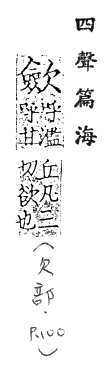 四聲篇海
歛呼濫
呼甘
丘凡二
切欲也
(欠部.P.100)